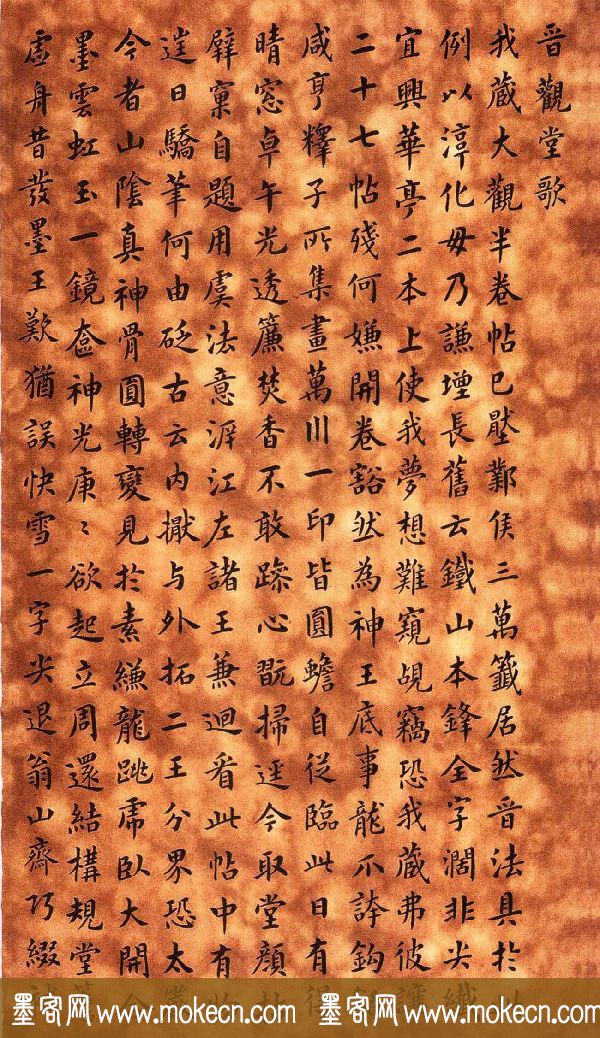 晉觀堂歌
我藏大觀半卷帖已壓鄴侯三萬籤居然晉法具於
例以淳化毋乃謙增長舊云鐵山本鋒全字濶非尖纖
宜興華亭二本上使我夢想難窺覘竊恐我藏弗彼讓
二十七帖殘何嫌開卷豁然為神王底事龍不誇鈎
咸亨釋子所集畫萬川一印皆圓蟾自從臨此日有得
晴窓卓午光透簾焚香不敢踪心翫掃逕今取堂顏
擘窠自題用虞法意涯江左諸王兼迴看此帖中有
逹日驕筆何由砭古云内擫与外拓二王分界恐太
今者山陰真神骨圓轉變見於素縑龍跳虎臥大開合
墨雲虹玉一鏡奩神光庚〻欲起立周還結構規堂
虛舟昔發墨王歎猶誤快雪一字尖退翁山齋巧綴
墨客网www.mokecn.com 墨客网www.mokecn.com